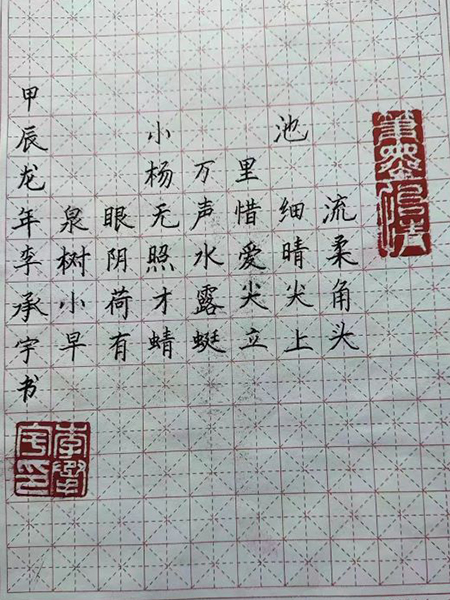 小池
杨万里
泉眼无声惜细流
树阴照水爱晴柔
小荷才露尖尖角
早有蜻蜓立上头
甲辰龙年李承宇书
李承
宇印